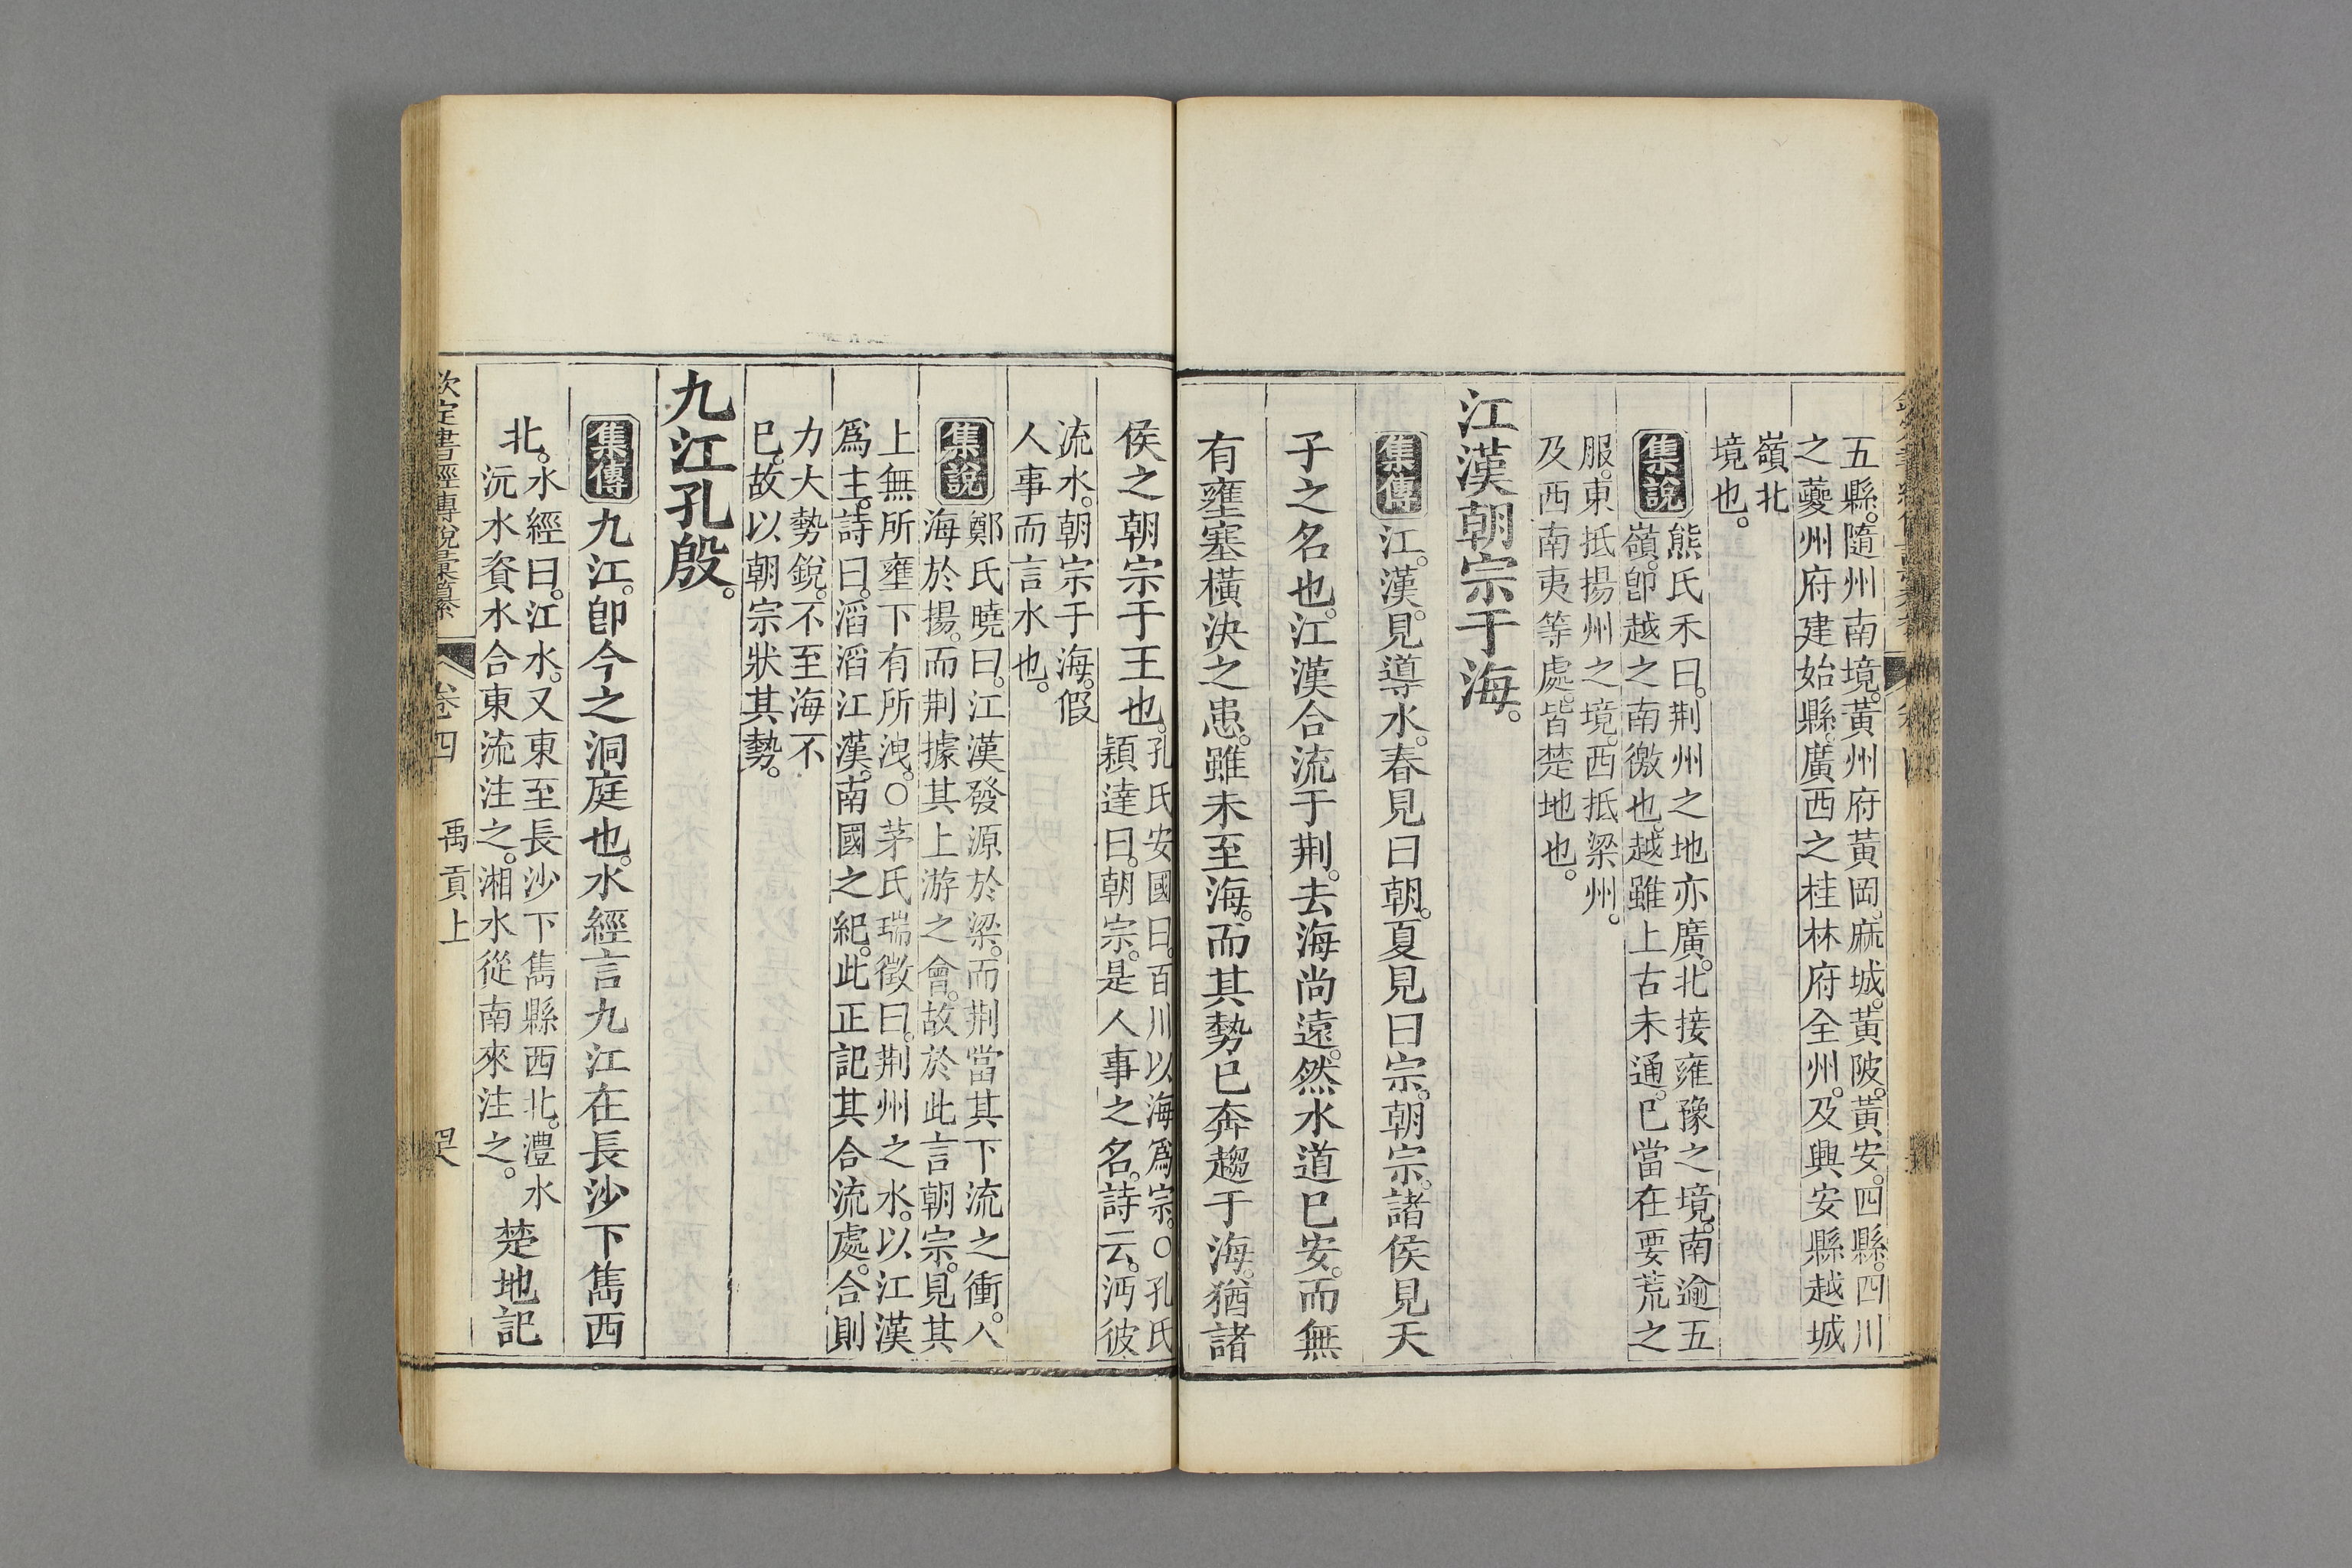 五縣。隨州南境。黃州府黃岡。麻城。黃陂。黃安。四縣。四川
之夔州府建始縣。廣西之桂林府全州。及興安縣越城
嶺北
境也。
集說
熊氏禾曰。荆州之地亦廣。北接雍豫之境。南逾五
嶺。卽越之南徼也。越雖上古未通。已當在要荒之
服。東抵揚州之境。西抵梁州。
及西南夷等處。皆楚地也。
江漢朝宗于海。
集傳
江。漢。見導水。春見曰朝。夏見曰宗。朝宗。諸侯見天
子之名也。江漢合流于荆。去海尚遠。然水道已安。而無
有壅塞橫決之患。雖未至海。而其勢已奔趨于海。猶諸
侯之朝宗于王也。
孔氏安國曰。百川以海爲宗。○孔氏
穎達曰。朝宗。是人事之名。詩云。沔彼
流水。朝宗于海。假
人事而言水也。
集說
鄭氏曉曰。江漢發源於梁。而荆當其下流之衝。入
海於揚。而荆據其上游之會。故於此言朝宗。見其
上無所壅下有所洩。○茅氏瑞徵曰。荆州之水。以江漢
爲主。詩曰。滔滔江漢。南國之紀。此正記其合流處。合則
力大勢銳。不至海不
已。故以朝宗狀其勢。
九江孔殷。
集傳
九江。卽今之洞庭也。水經言九江在長沙下雋西
北。
水經曰。江水。又東至長沙下雋縣西北。澧水
沅水資水合東流注之。湘水從南來注之。
楚地記
欽定書經傳說彙纂
卷四
禹貢上